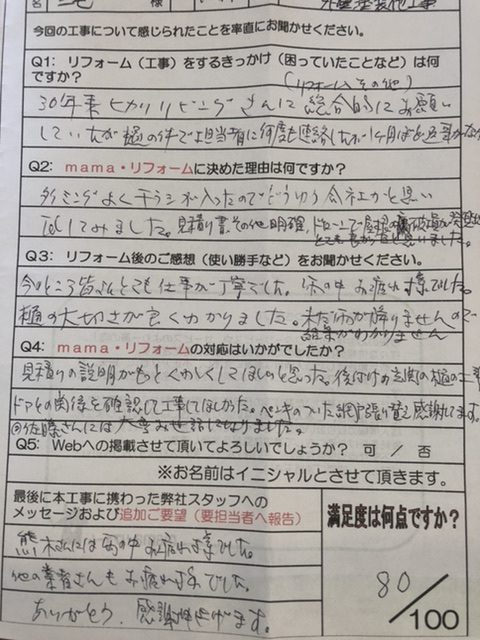 名
様
外壁塗装他工事
今回の工事について感じられたことを率直にお聞かせください。
Q1: リフォーム(工事)をするきっかけ(困っていたことなど)は何
ですか?
(リフォーム、その他)
30年来ヒカリリビングさんに総合的にお願い
していたが樋の件で担当者に何度も連絡したが1ヶ月ほど返事がなく
Q2: mama・リフォームに決めた理由は何ですか?
タイミングよくチラシが入ったのでどうゆう会社かと思い
試してみました。見積り書、その他明確、ドローンで屋根の破損が
とても良かったと思いました。
Q3: リフォーム後のご感想(使い勝手など)をお聞かせください。
今のところ皆さんとても仕事が丁寧でした。雨の中お疲れ様でした。
樋の大切さが良くわかりました。まだ雨が降りませんので
結果がわかりません
Q4: mama・リフォームの対応はいかがでしたか?
見積りの説明がもっとくわしくしてほしいと思った。後付けの玄関の樋の工事
ドアとの関係を確認して工事してほしかった。ペンキのついた網戸張り替え感謝してます。
◎佐藤さんには大変お世話になりました。
Q5: Webへの掲載させて頂いてよろしいでしょうか? 可 / 否
※お名前はイニシャルとさせて頂きます。
最後に本工事に携わった弊社スタッフへの
メッセージおよび追加ご要望(要担当者へ報告)
熊木さんには雨の中お疲れ様でした。
他の業者さんもお疲れ様でした。
ありがとう、感謝申上げます。
満足度は何点ですか?
80/100